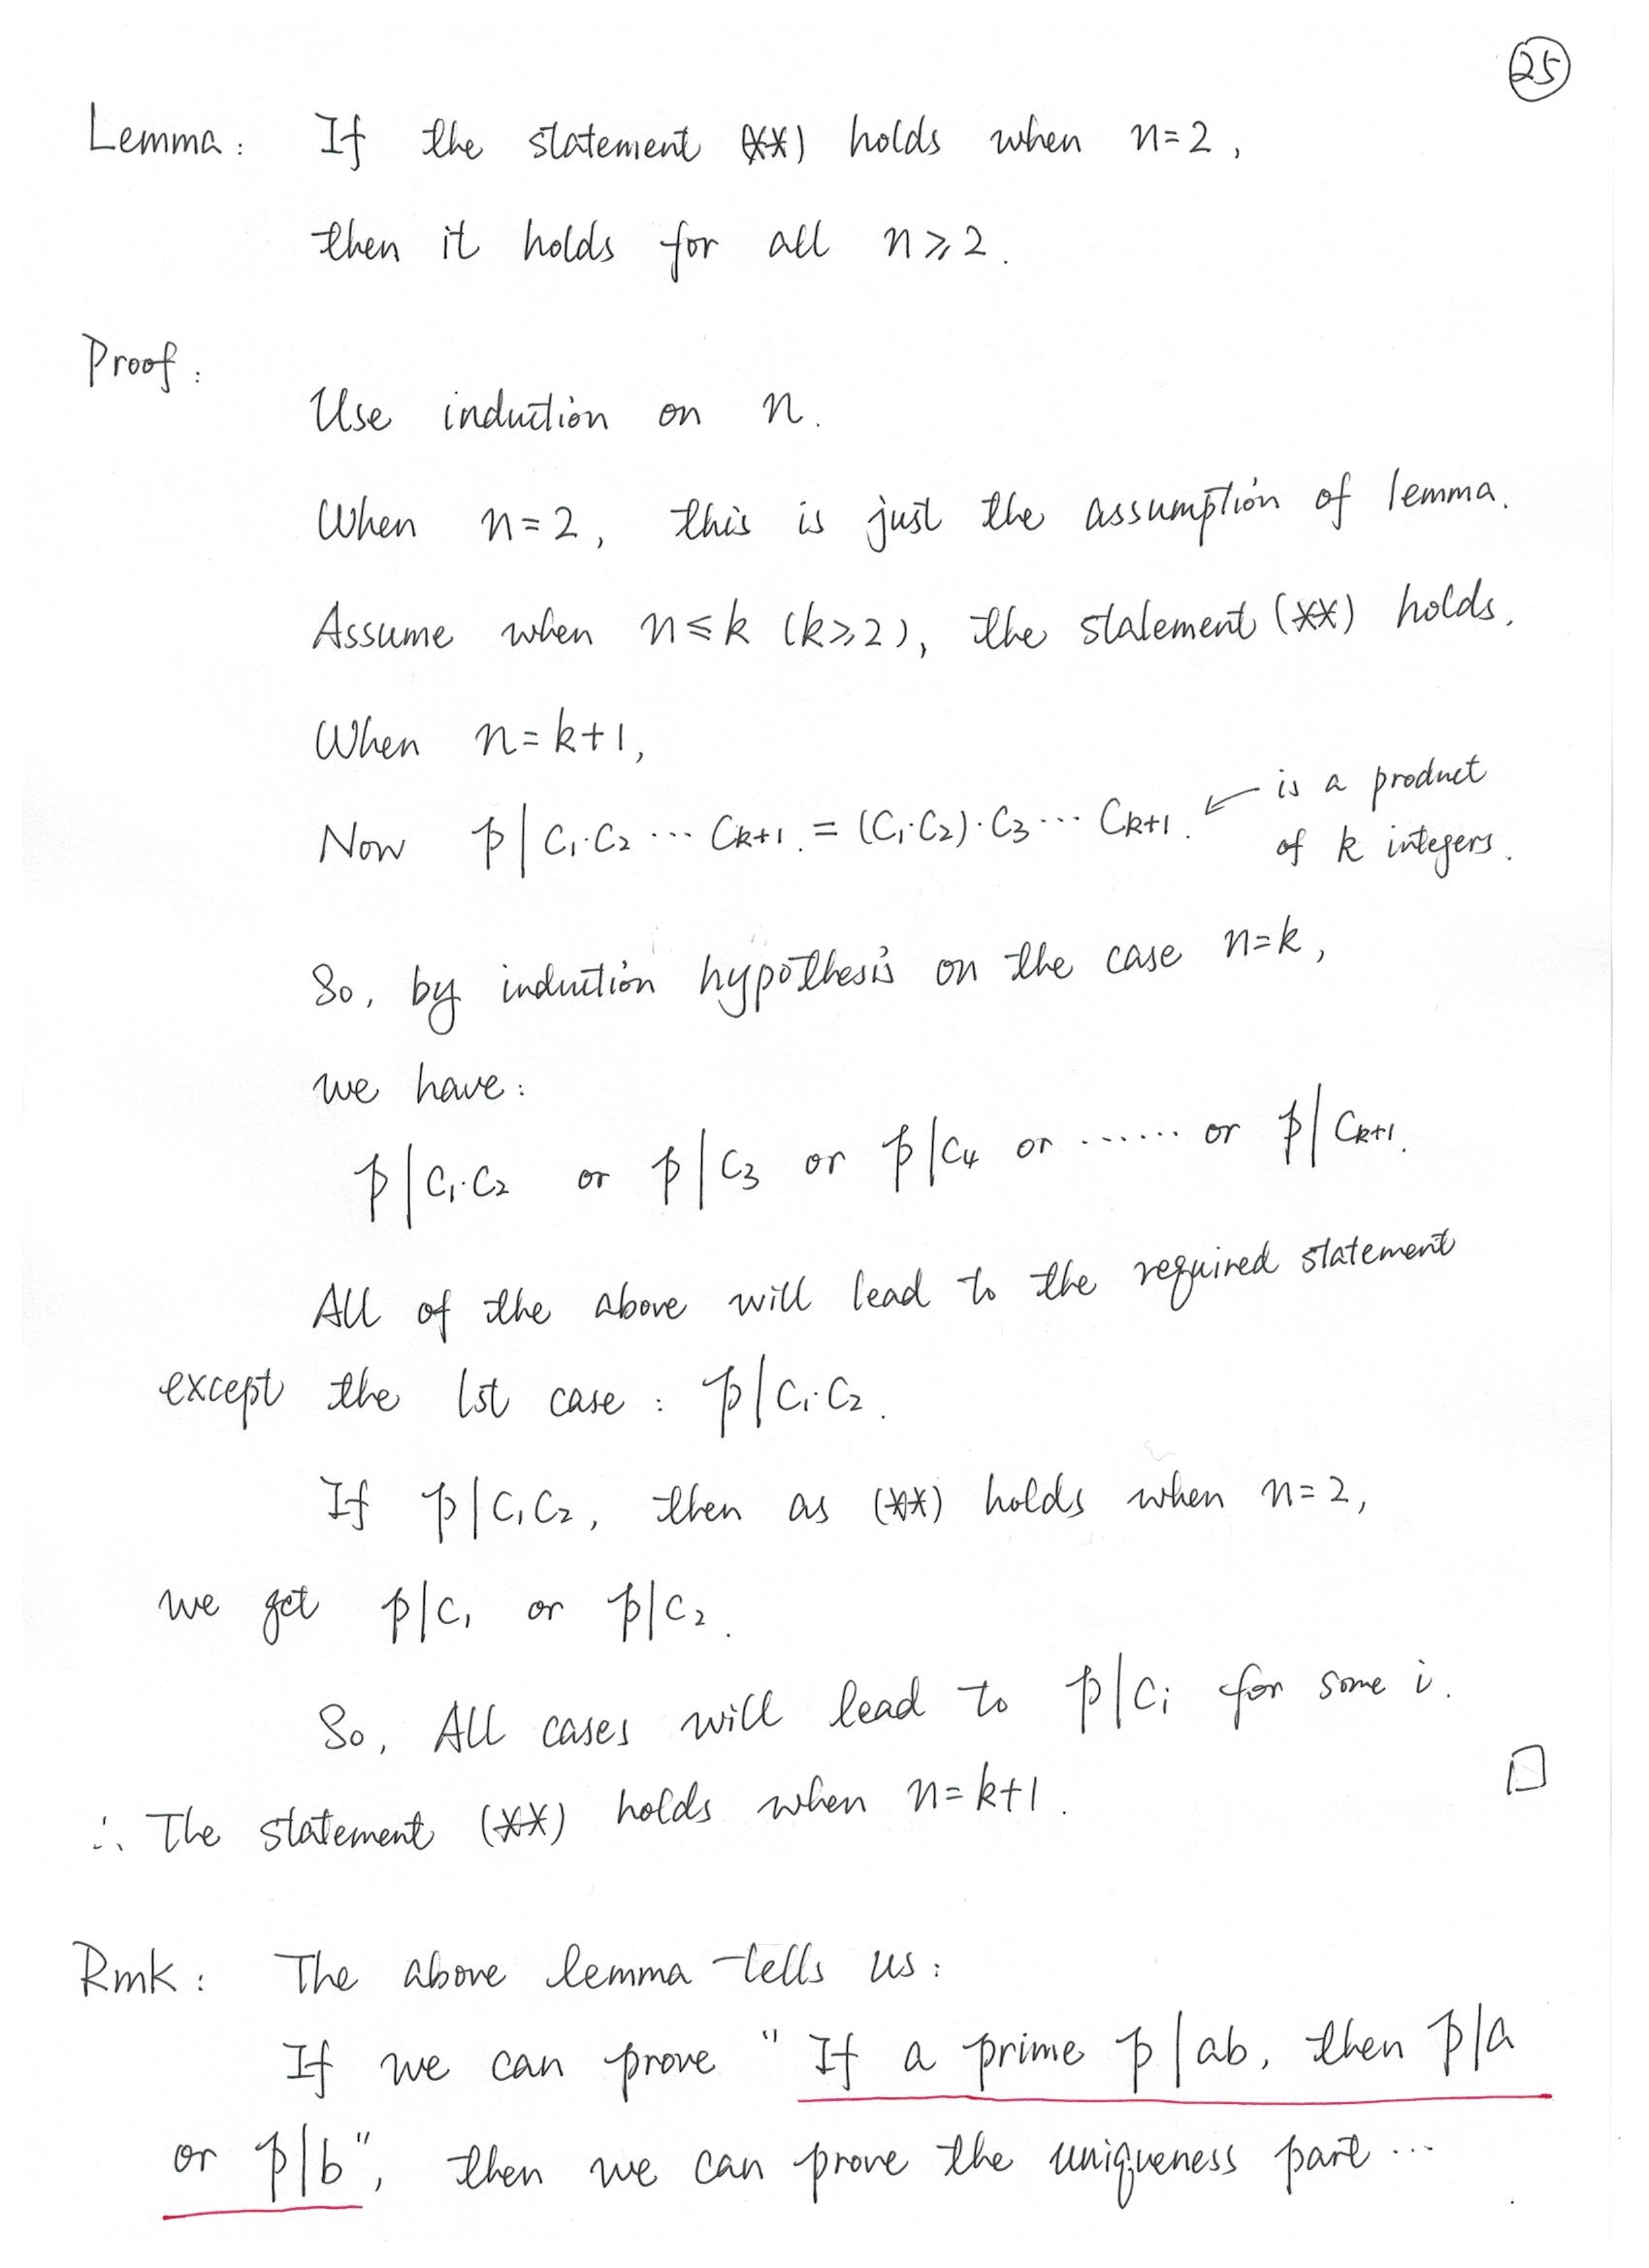 25
Lemma: If the statement (**) holds when n=2,
then it holds for all n⩾2.
Proof:
Use induction on n.
When n=2, this is just the assumption of lemma.
Assume when n⩽k (k⩾2), the statement (**) holds.
When n=k+1,
Now p | C₁·C₂ ··· Ck+1. = (C₁·C₂)·C₃ ··· Ck+1. ← is a product
of k integers.
So, by induction hypothesis on the case n=k,
we have:
p | C₁·C₂ or p | C₃ or p | C₄ or ······ or p | Ck+1.
All of the above will lead to the required statement
except the 1st case: p | C₁·C₂.
If p | C₁C₂, then as (**) holds when n=2,
we get p | C₁ or p | C₂.
So, All cases will lead to p | Ci for some i.
∴ The statement (**) holds when n=k+1. □
Rmk: The above lemma tells us:
If we can prove "If a prime p | ab, then p | a
or p | b", then we can prove the uniqueness part ···